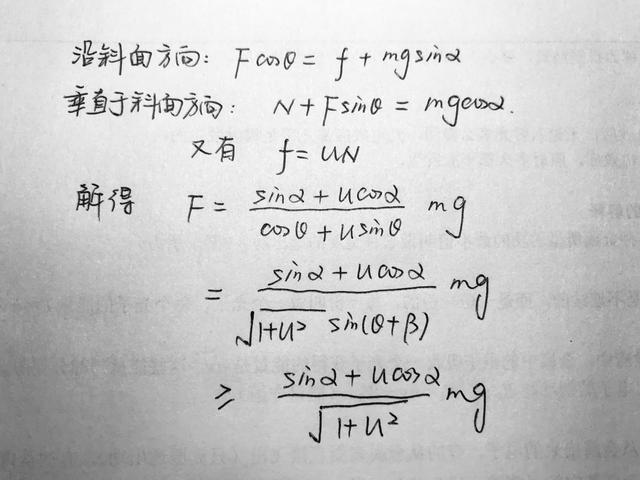 沿斜面方向: Fcosθ = f + mgsinα
垂直于斜面方向: N + Fsinθ = mgcosα.
又有 f = uN
解得 F = \frac{sinα + ucosα}{cosθ + usinθ} mg
= \frac{sinα + ucosα}{\sqrt{1+u²} sin(θ+β)} mg
≥ \frac{sinα + ucosα}{\sqrt{1+u²}} mg